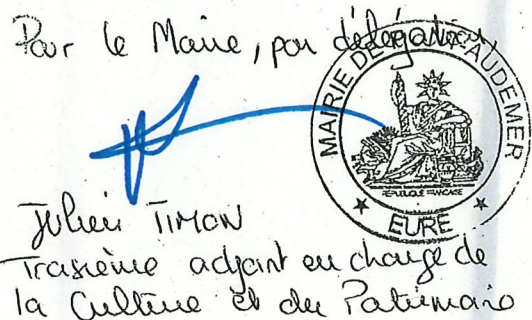 Pour le Maire, par délégation
MAIRIE DE PONT-AUDEMER
RÉPUBLIQUE FRANÇAISE
★ EURE ★
Julien TIMON
Troisième adjoint en charge de
la Culture et du Patrimoine